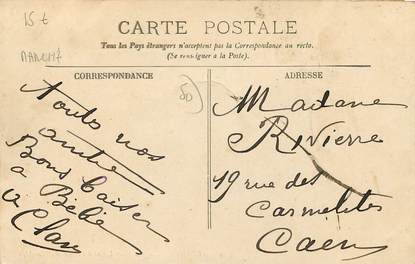 15 €
MANCHE
CARTE POSTALE
Tous les Pays étrangers n'acceptent pas la Correspondance au recto.
(Se renseigner à la Poste).
CORRESPONDANCE
ADRESSE
50
nos
Bons baisers
a Bébé
Madame
Rivierre
19 rue des
Carmelites
Caen